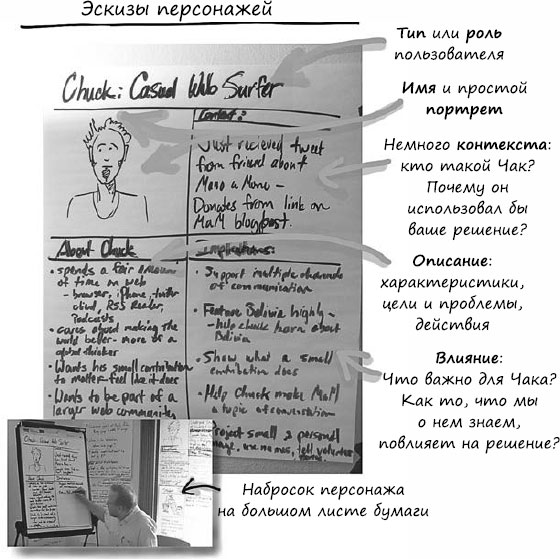 Эскизы персонажей
Chuck: Casual Web Surfer
Context:
Just recieved tweet
from friend about
Mano a Mano –
Donates from link on
MaM blogpost.
About Chuck
• spends a fair amount
of time on web
– browser, iPhone, twitter
client, RSS Reader,
Podcasts
• cares about making the
world better – more of a
global thinker
• Wants his small contribution
to matter – feel like it does
• Wants to be part of a
larger web communities
Implications:
• Support multiple channels
of communication
• Feature Bolivia highly –
– help chuck learn about
Bolivia
• Show what a small
contribution does
• Help Chuck make MaM
a topic of conversation
Project small & personal
use names, tell volunteer
Тип или роль
пользователя
Имя и простой
портрет
Немного контекста:
кто такой Чак?
Почему он
использовал бы
ваше решение?
Описание:
характеристики,
цели и проблемы,
действия
Влияние:
Что важно для Чака?
Как то, что мы
о нем знаем,
повлияет на решение?
Набросок персонажа
на большом листе бумаги